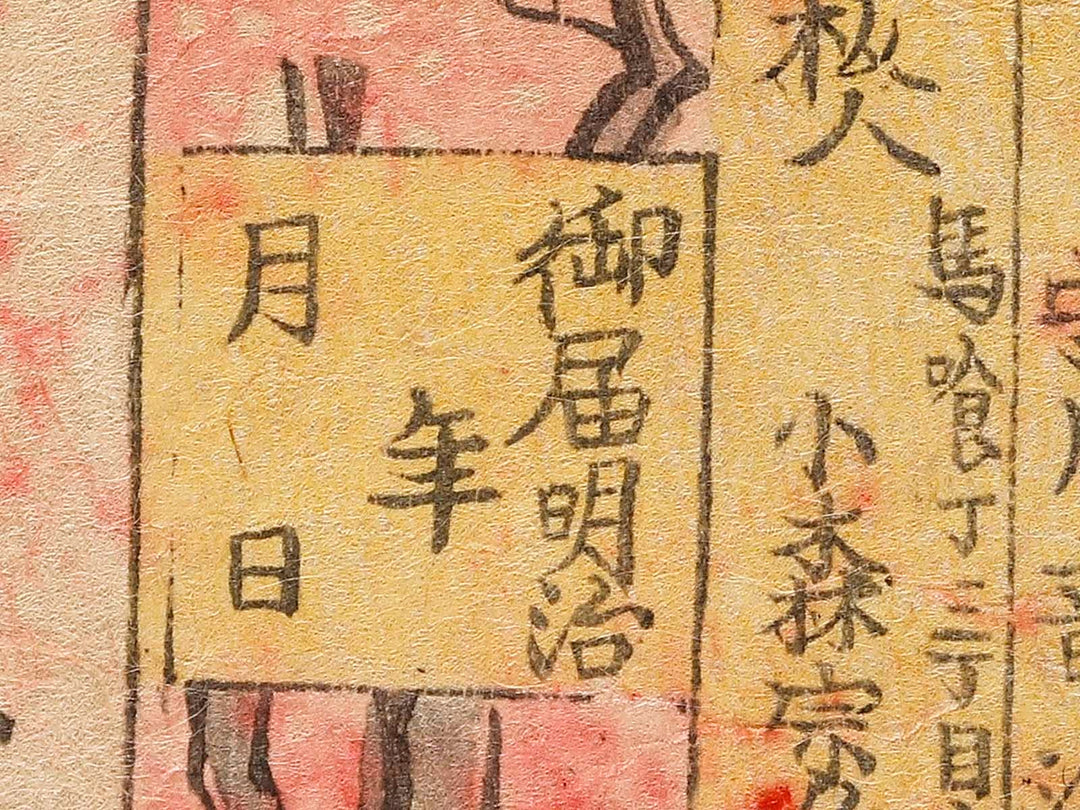 馬喰丁三丁目
人 小森宗
御届明治
年
月 日